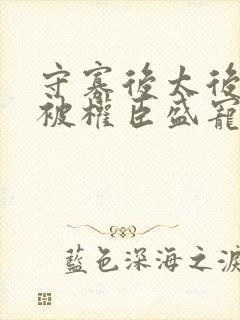 守寡後太後
被權臣盛寵
藍色深海之淚